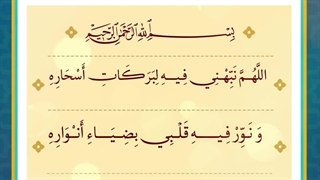 بِسْمِ اللهِ الرَّحْمَنِ الرَّحِيمِ
اللَّهُمَّ نَبِّهْنِي فِيهِ لِبَرَكَاتِ أَسْحَارِهِ
وَ نَوِّرْ فِيهِ قَلْبِي بِضِيَاءِ أَنْوَارِهِ